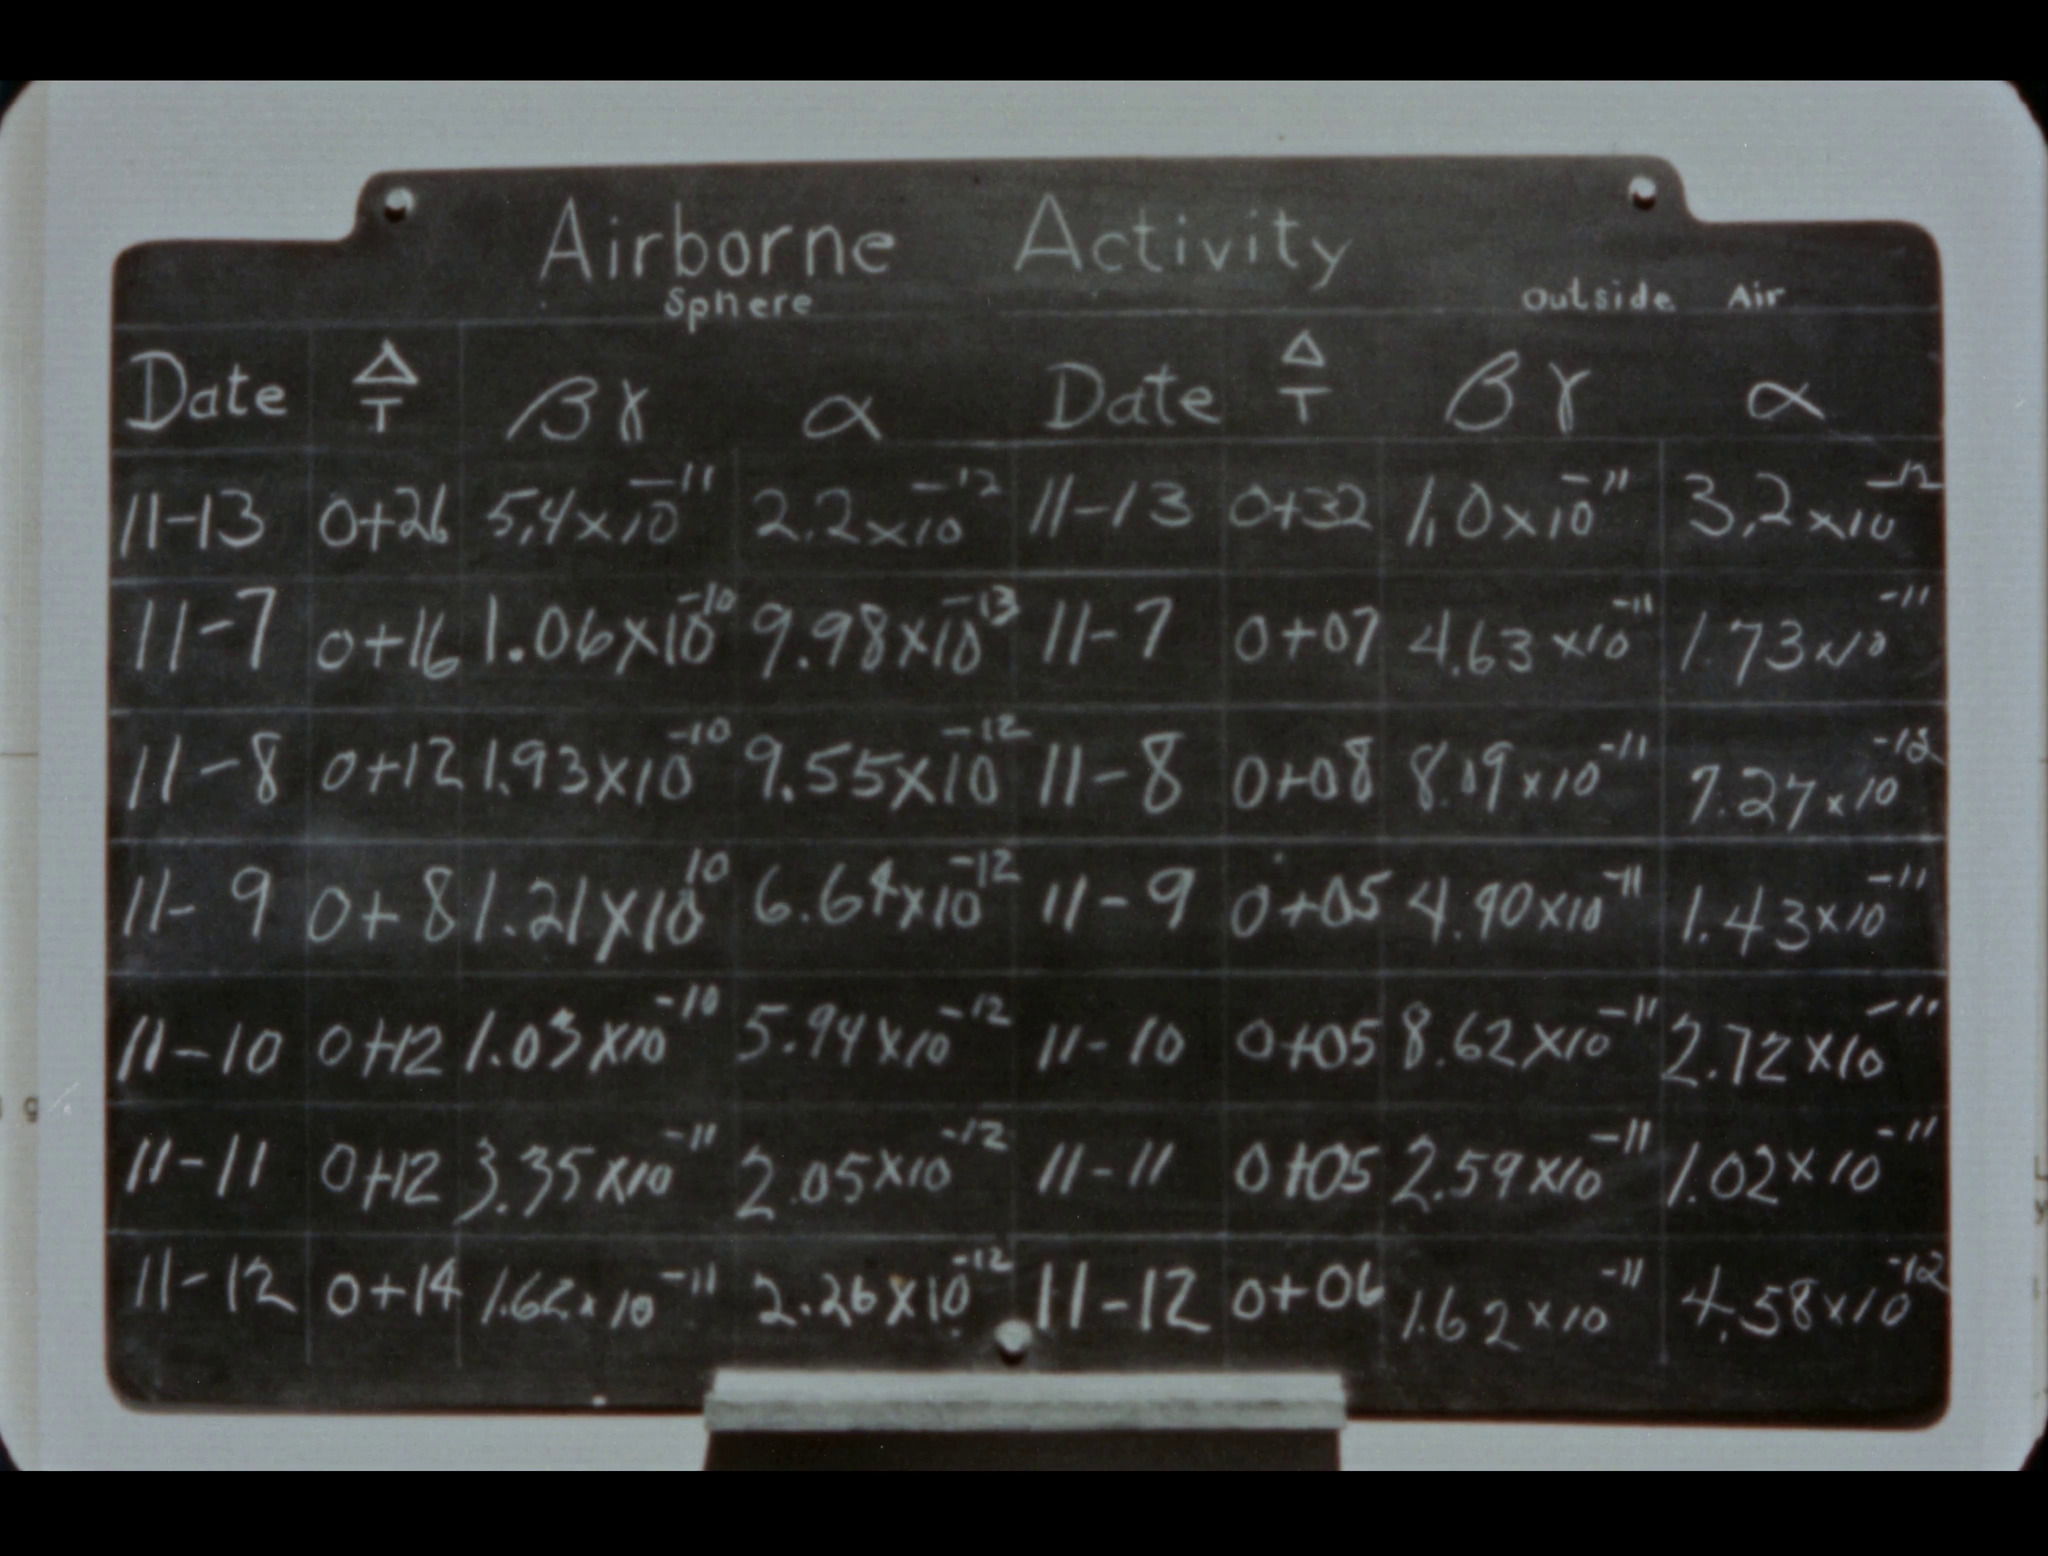 Airborne Activity
Sphere Outside Air
Date Δ/T βγ α Date Δ/T βγ α
11-13 0+26 5,4x10⁻¹¹ 2.2x10⁻¹² 11-13 0+32 1,0x10⁻¹¹ 3,2x10⁻¹²
11-7 0+16 1.06x10⁻¹⁰ 9.98x10⁻¹³ 11-7 0+07 4.63x10⁻¹¹ 1.73x10⁻¹¹
11-8 0+12 1.93x10⁻¹⁰ 9.55x10⁻¹² 11-8 0+08 8.19x10⁻¹¹ 7.27x10⁻¹²
11-9 0+8 1.21x10¹⁰ 6.64x10⁻¹² 11-9 0+05 4.90x10⁻¹¹ 1.43x10⁻¹¹
11-10 0+12 1.03x10⁻¹⁰ 5.94x10⁻¹² 11-10 0+05 8.62x10⁻¹¹ 2.72x10⁻¹¹
11-11 0+12 3.35x10⁻¹¹ 2.05x10⁻¹² 11-11 0+05 2.59x10⁻¹¹ 1.02x10⁻¹¹
11-12 0+14 1.62x10⁻¹¹ 2.26x10⁻¹² 11-12 0+06 1.62x10⁻¹¹ 4.58x10⁻¹²